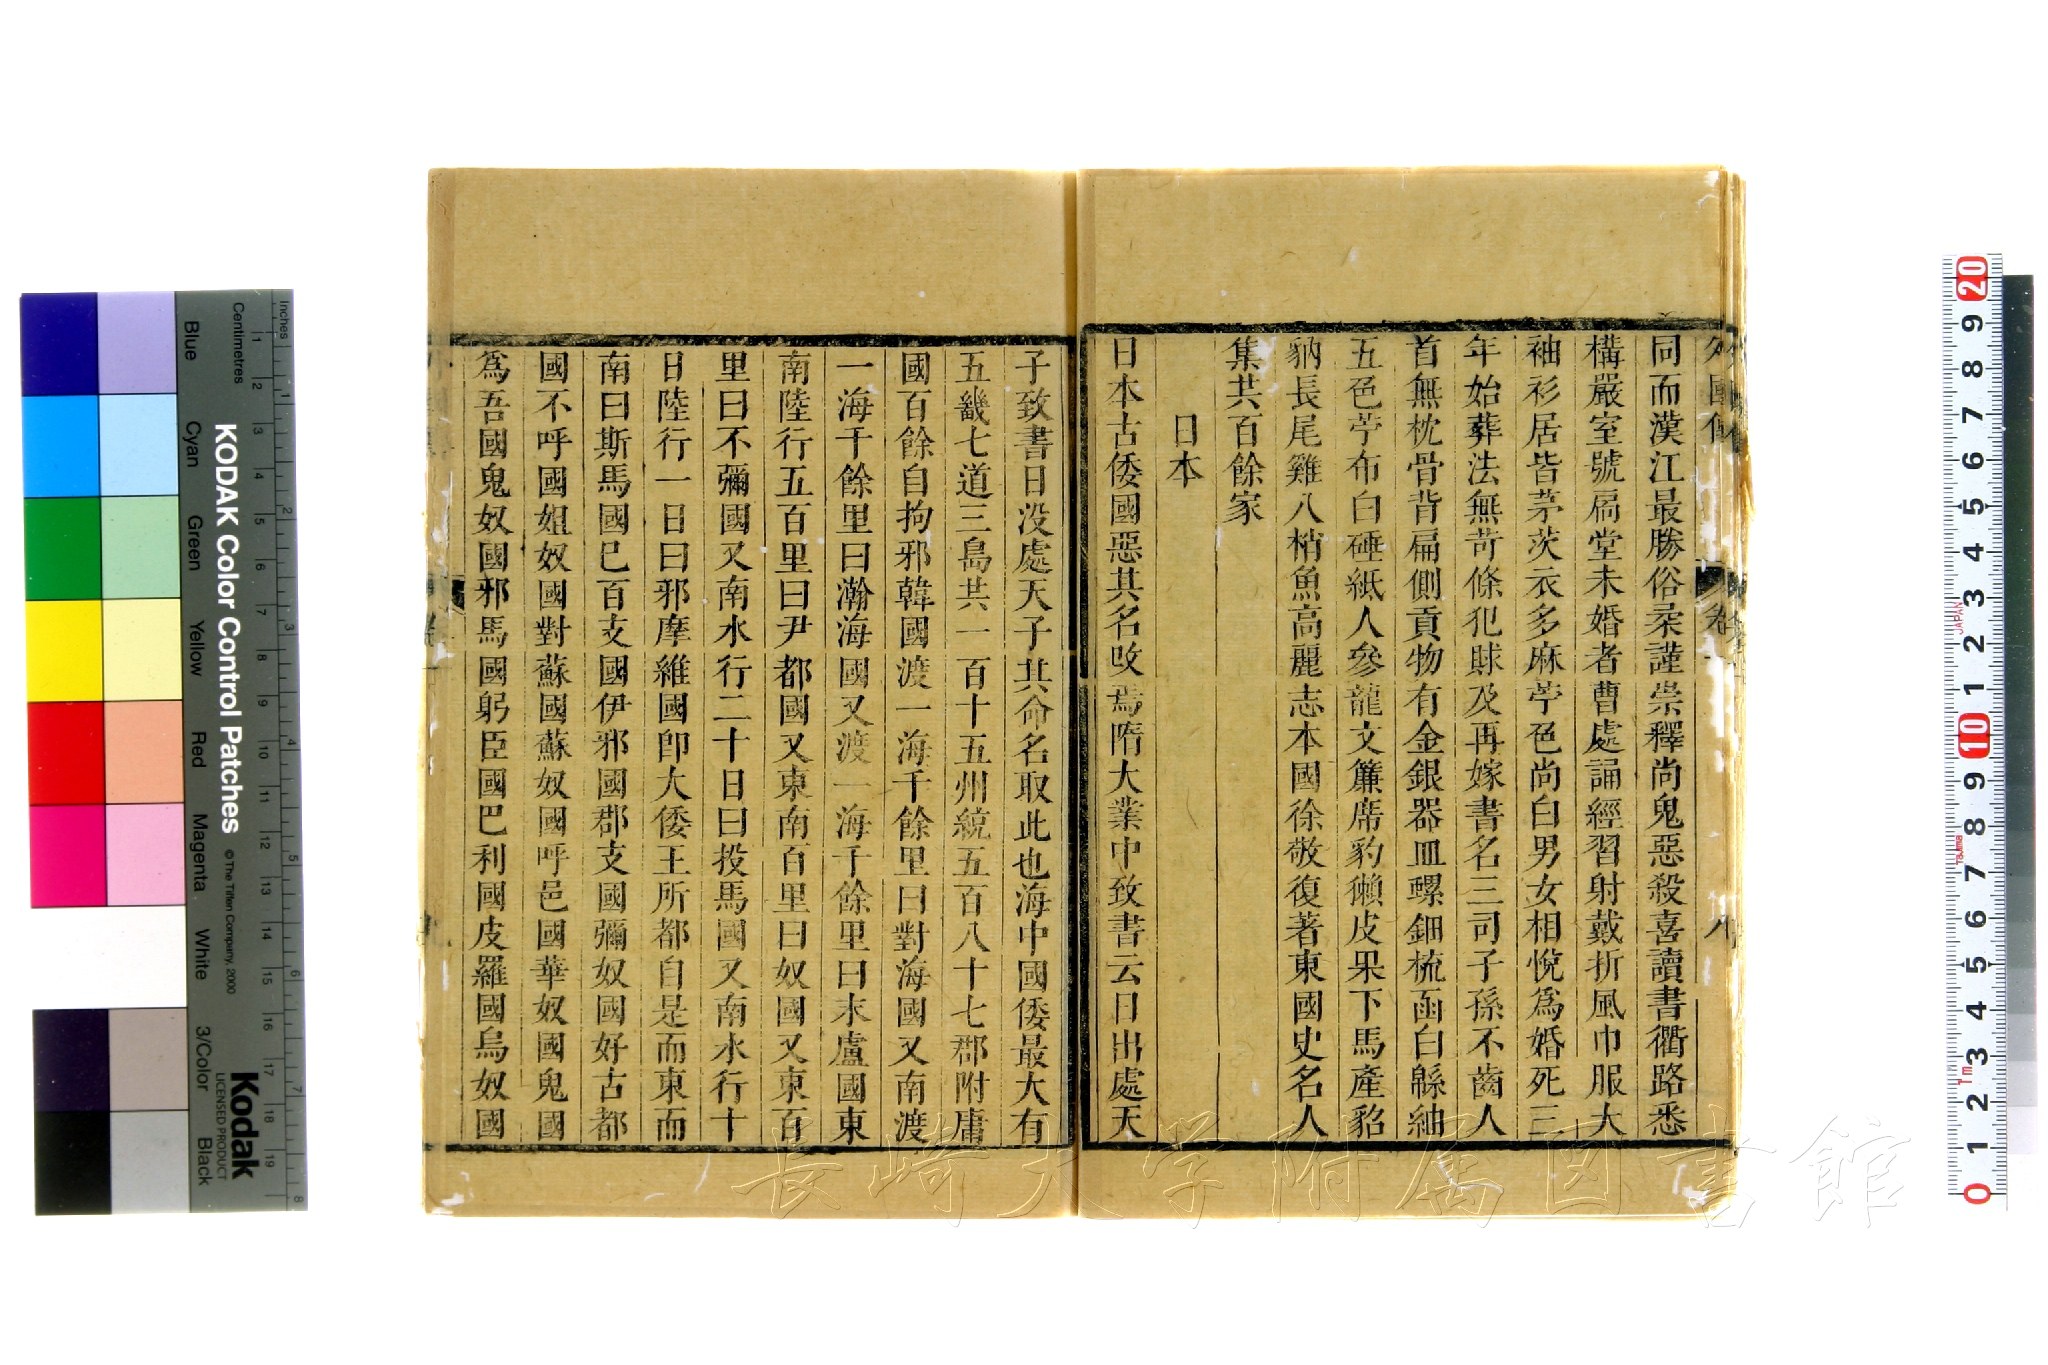 外國傳
卷
同而漢江最勝俗柔謹崇釋尚鬼惡殺喜讀書衢路悉
構嚴室號扃堂未婚者曹處誦經習射戴折風巾服大
袖衫居皆茅茨衣多麻苧色尚白男女相悅爲婚死三
年始葬法無苛條犯賕及再嫁書名三司子孫不齒人
首無枕骨背扁側貢物有金銀器皿螺鈿梳函白緜紬
五色苧布白硾紙人參龍文簾席豹獺皮果下馬產貂
豽長尾雞八梢魚高麗志本國徐敬復著東國史名人
集共百餘家
日本
日本古倭國惡其名改焉隋大業中致書云日出處天
子致書日没處天子其命名取此也海中國倭最大有
五畿七道三島共一百十五州統五百八十七郡附庸
國百餘自拘邪韓國渡一海千餘里曰對海國又南渡
一海千餘里曰瀚海國又渡一海千餘里曰末盧國東
南陸行五百里曰尹都國又東南百里曰奴國又東百
里曰不彌國又南水行二十日曰投馬國又南水行十
日陸行一日曰邪摩維國卽大倭王所都自是而東而
南曰斯馬國巳百支國伊邪國郡支國彌奴國好古都
國不呼國姐奴國對蘇國蘇奴國呼邑國華奴國鬼國
爲吾國鬼奴國邪馬國躬臣國巴利國皮羅國烏奴國
長崎大学附属図書館
Inches
Centimetres
KODAK Color Control Patches
© The Tiffen Company, 2000
Kodak
LICENSED PRODUCT
Blue
Cyan
Green
Yellow
Red
Magenta
White
3/Color
Black
20
9
8
7
6
5
4
3
2
1
10
9
8
7
6
5
4
3
2
1
0
JAPAN
Tajima
1m